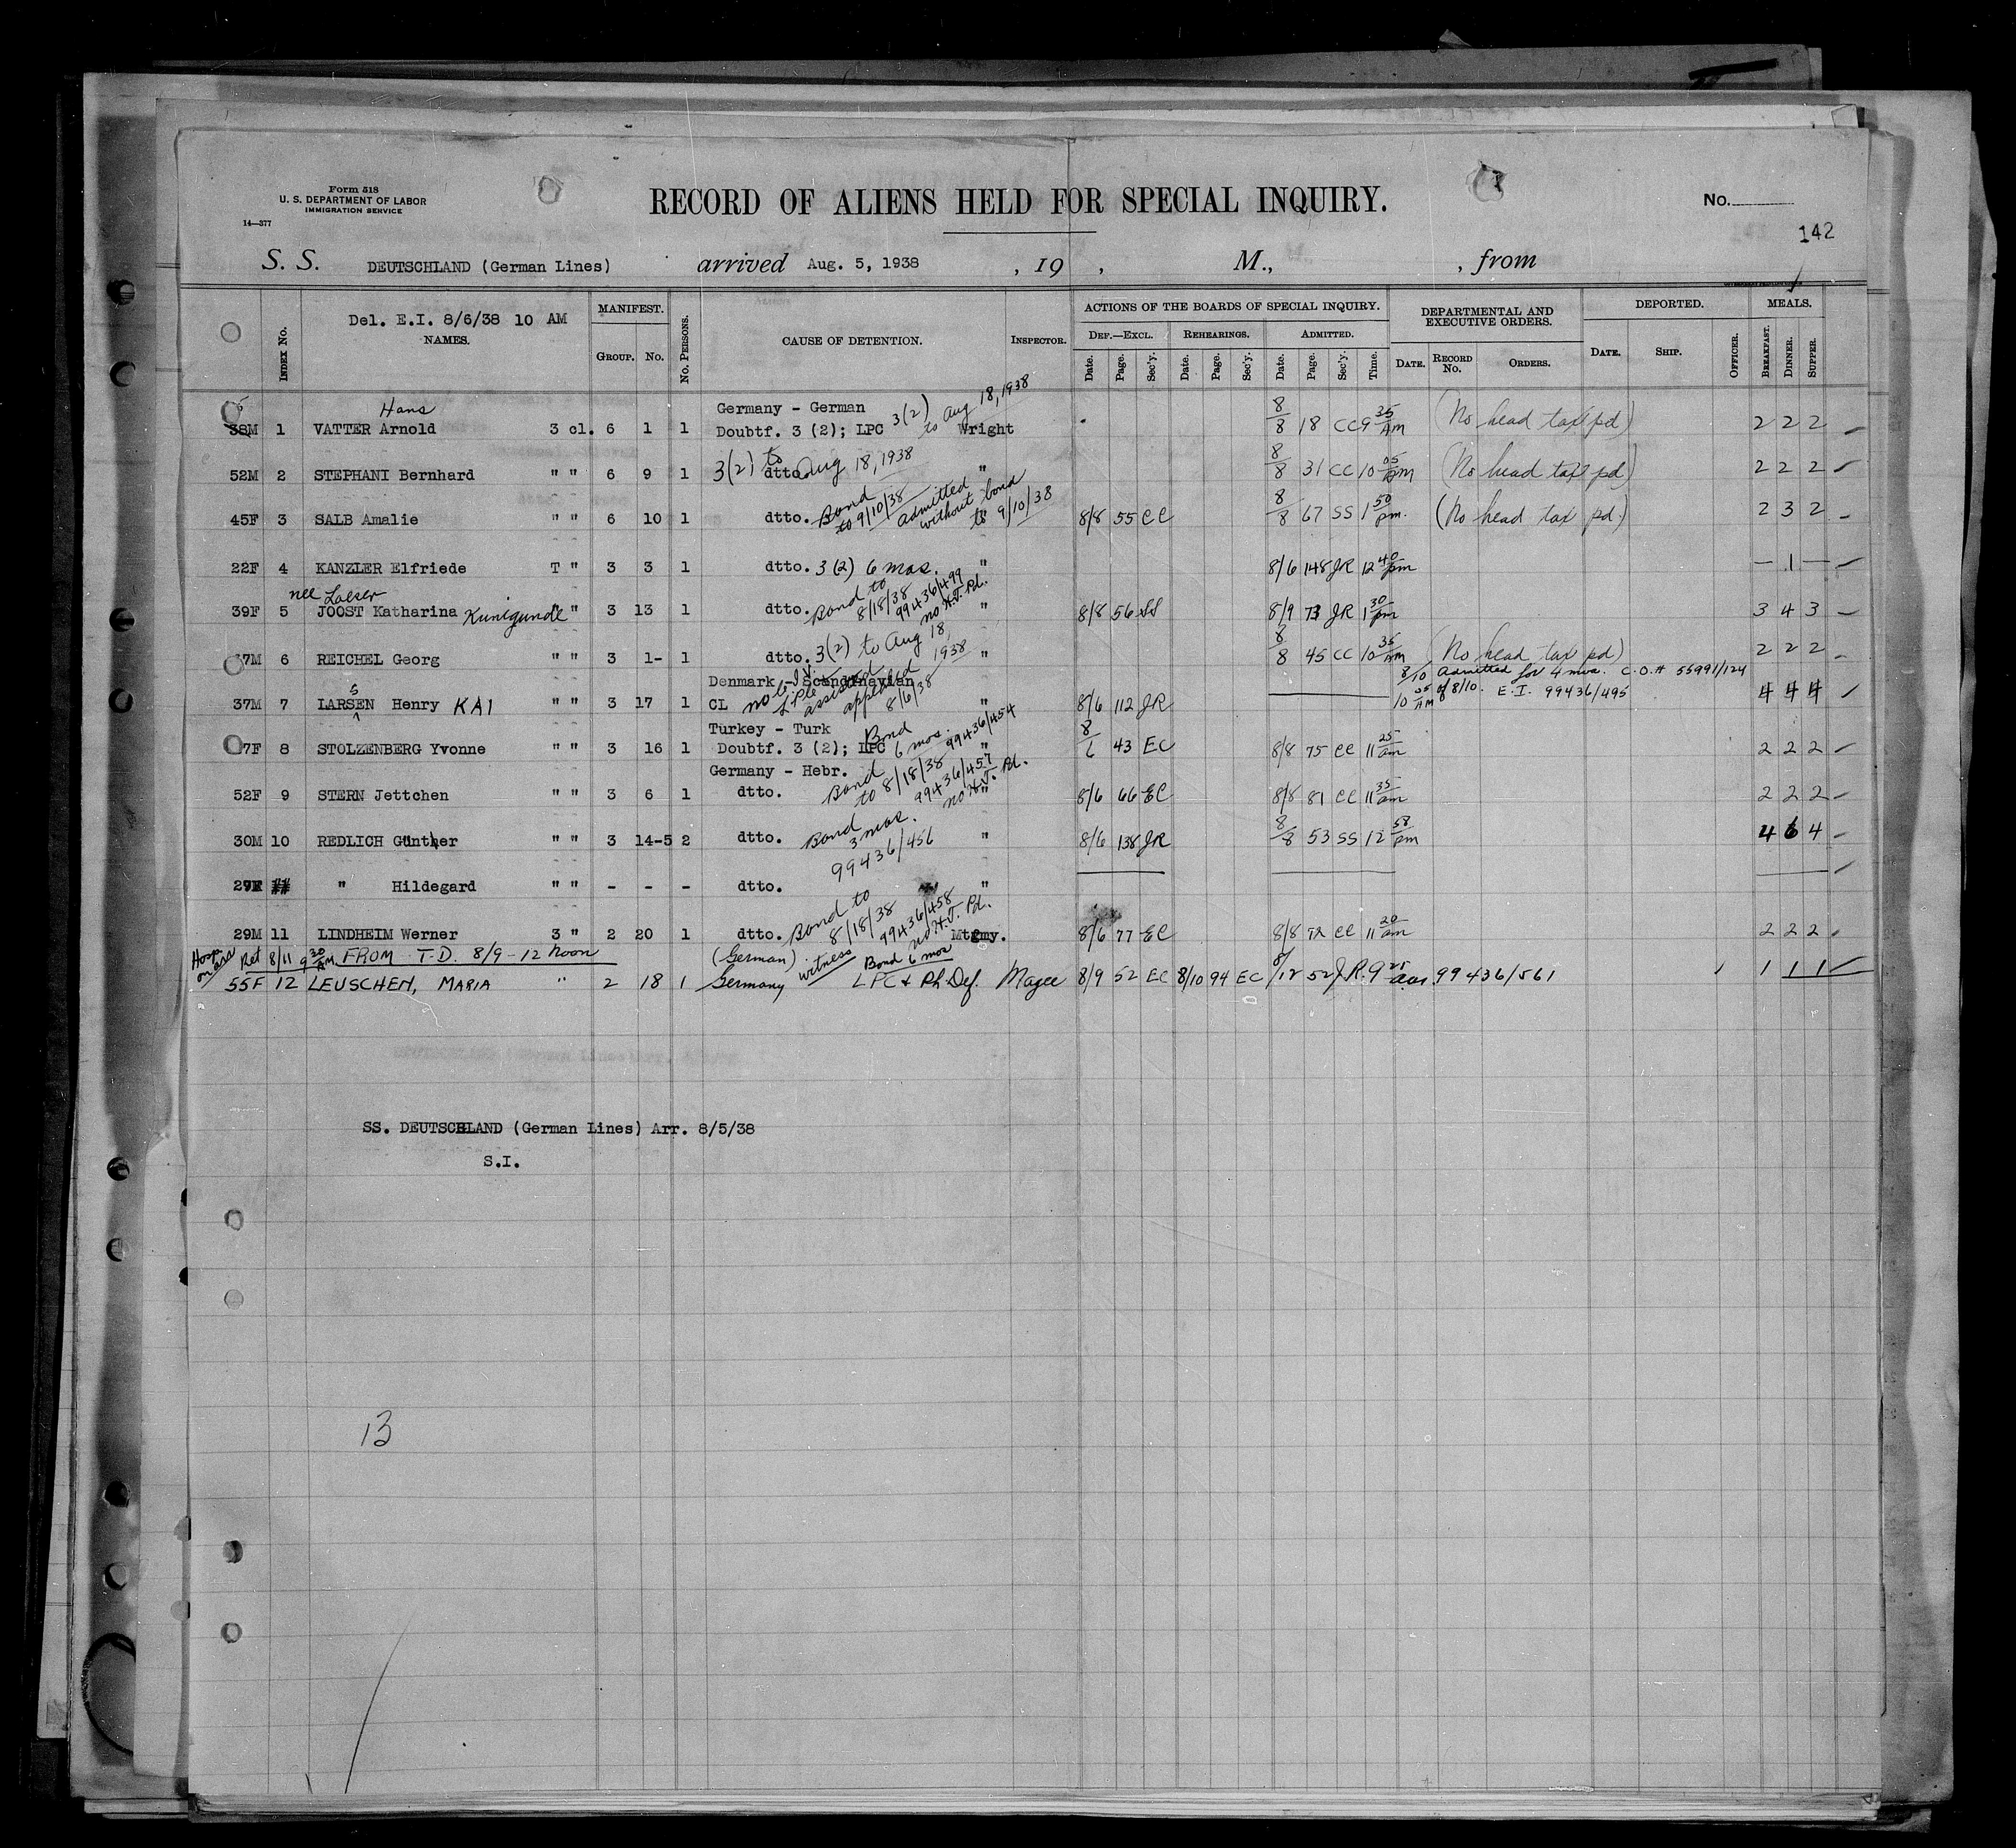 Form 518
U. S. DEPARTMENT OF LABOR
IMMIGRATION SERVICE
14—377
RECORD OF ALIENS HELD FOR SPECIAL INQUIRY.
No.
142
S. S. DEUTSCHLAND (German Lines) arrived Aug. 5, 1938 , 19 , M., , from
INDEX No. Del. E.I. 8/6/38 10 AM NAMES. MANIFEST. GROUP. No. No. PERSONS. CAUSE OF DETENTION. INSPECTOR. ACTIONS OF THE BOARDS OF SPECIAL INQUIRY. DEPARTMENTAL AND EXECUTIVE ORDERS. DEPORTED. MEALS.
DEF.—EXCL. REHEARINGS. ADMITTED.
Date. Page. Sec'y. Date. Page. Sec'y. Date. Page. Sec'y. Time. DATE. RECORD No. ORDERS. DATE. SHIP. OFFICER. BREAKFAST. DINNER. SUPPER.
Hans Germany - German 3(2) to Aug 18, 1938
38M 1 VATTER Arnold 3 cl. 6 1 1 Doubtf. 3 (2); LPC Wright 8/8 18 CC 9 35 AM (No head tax pd) 2 2 2
52M 2 STEPHANI Bernhard " " 6 9 1 dtto. 3(2) to Aug 18, 1938 " 8/8 31 CC 10 05 (No head tax pd) 2 2 2
45F 3 SALB Amalie " " 6 10 1 dtto. Bond to 9/10/38 admitted without bond to 9/10/38 8/8 55 CC 8/8 67 SS 1 50 pm. (No head tax pd.) 2 3 2
22F 4 KANZLER Elfriede T " 3 3 1 dtto. 3(2) 6 mos. " 8/6 148 JR 12 40 pm — 1 —
nee Loeser
39F 5 JOOST Katharina Kunigunde " " 3 13 1 dtto. Bond to 8/18/38 99436/499 no H.T. Pd. " 8/8 56 SS 8/9 73 JR 1 30 pm 3 4 3
37M 6 REICHEL Georg " " 3 1- 1 dtto. 3(2) to Aug 18, 1938 " 8/8 45 CC 10 35 AM (No head tax pd) 2 2 2
Denmark - Scandinavian 8/10 Admitted for 4 mos. C.O.# 55991/124
37M 7 LARSSEN Henry KAI " " 3 17 1 CL assisted appealed 8/6/38 " 8/6 112 JR 10 05 AM of 8/10. E.I. 99436/495 4 4 4
Turkey - Turk
7F 8 STOLZENBERG Yvonne " " 3 16 1 Doubtf. 3 (2); LPC Bond 6 mos. 99436/454 " 8/6 43 EC 8/8 75 CC 11 25 am 2 2 2
Germany - Hebr.
52F 9 STERN Jettchen " " 3 6 1 dtto. Bond to 8/18/38 99436/457 no H.T. Pd. " 8/6 66 EC 8/8 81 CC 11 35 am 2 2 2
30M 10 REDLICH Günther " " 3 14-5 2 dtto. Bond 3 mos. 99436/456 " 8/6 138 JR 8/8 53 SS 12 58 pm 4 6 4
29F " Hildegard " " - - - dtto. "
29M 11 LINDHEIM Werner 3 " 2 20 1 dtto. Bond to 8/18/38 99436/458 no H.T. Pd. Mtgmy. 8/6 77 EC 8/8 72 CC 11 20 am 2 2 2
Hosp. on ass Ret 8/11 9 30 AM. FROM T.D. 8/9 - 12 Noon (German) witness Bond 6 mos
55F 12 LEUSCHEN, MARIA " 2 18 1 Germany LPC & Ph Def. Magee 8/9 52 EC 8/10 94 EC 8/12 52 J.R. 9 25 am. 99436/561 1 1 1
SS. DEUTSCHLAND (German Lines) Arr. 8/5/38
S.I.
13